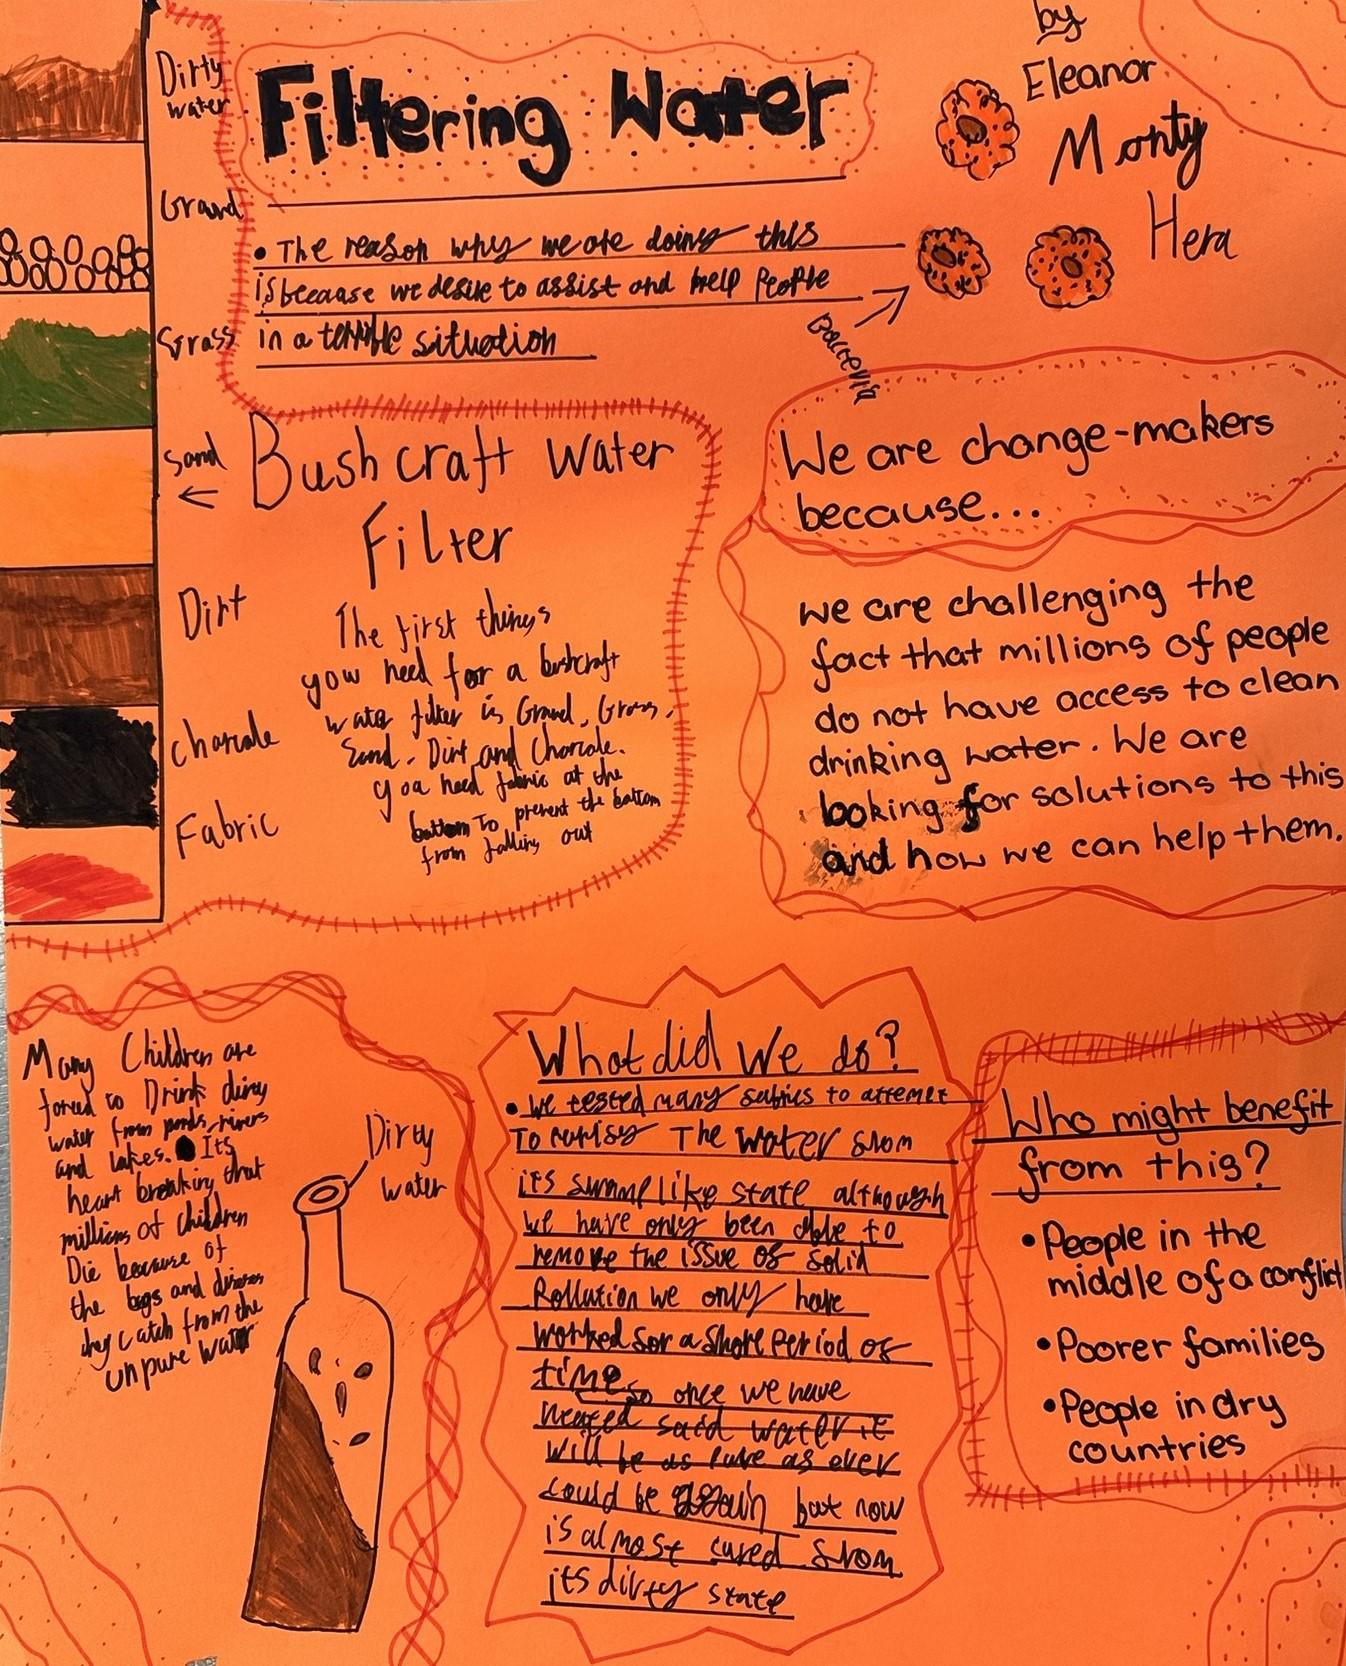 by
Eleanor
Monty
Hera
Filtering Water
Dirty
water
Gravel
Grass
Sand
Dirt
Charcale
Fabric
• The reason why we are doing this
is because we desire to assist and help People
in a terrible situation
Bacteria
Bushcraft water
Filter
The first things
you need for a bushcraft
water filter is Gravel, Grass,
Sand, Dirt and Charcale.
you need fabric at the
bottom To prevent the bottom
from falling out
We are change-makers
because...
we are challenging the
fact that millions of people
do not have access to clean
drinking water. We are
looking for solutions to this
and how we can help them.
Many Children are
forced to Drink dirty
water from ponds, rivers
and lakes. Its
heart breaking that
millions of children
Die because of
the bugs and diseases
they catch from the
unpure water
Dirty
water
What did We do?
• We tested many fabrics to attempt
To The water from
its like state although
we have only been able to
remove the issue of solid
Pollution we only have
worked for a short Period of
time so once we have
heated said water it
will be as Pure as ever
could be but now
is almost cured from
its dirty state
Who might benefit
from this?
• People in the
middle of a conflict
• Poorer families
• People in dry
countries